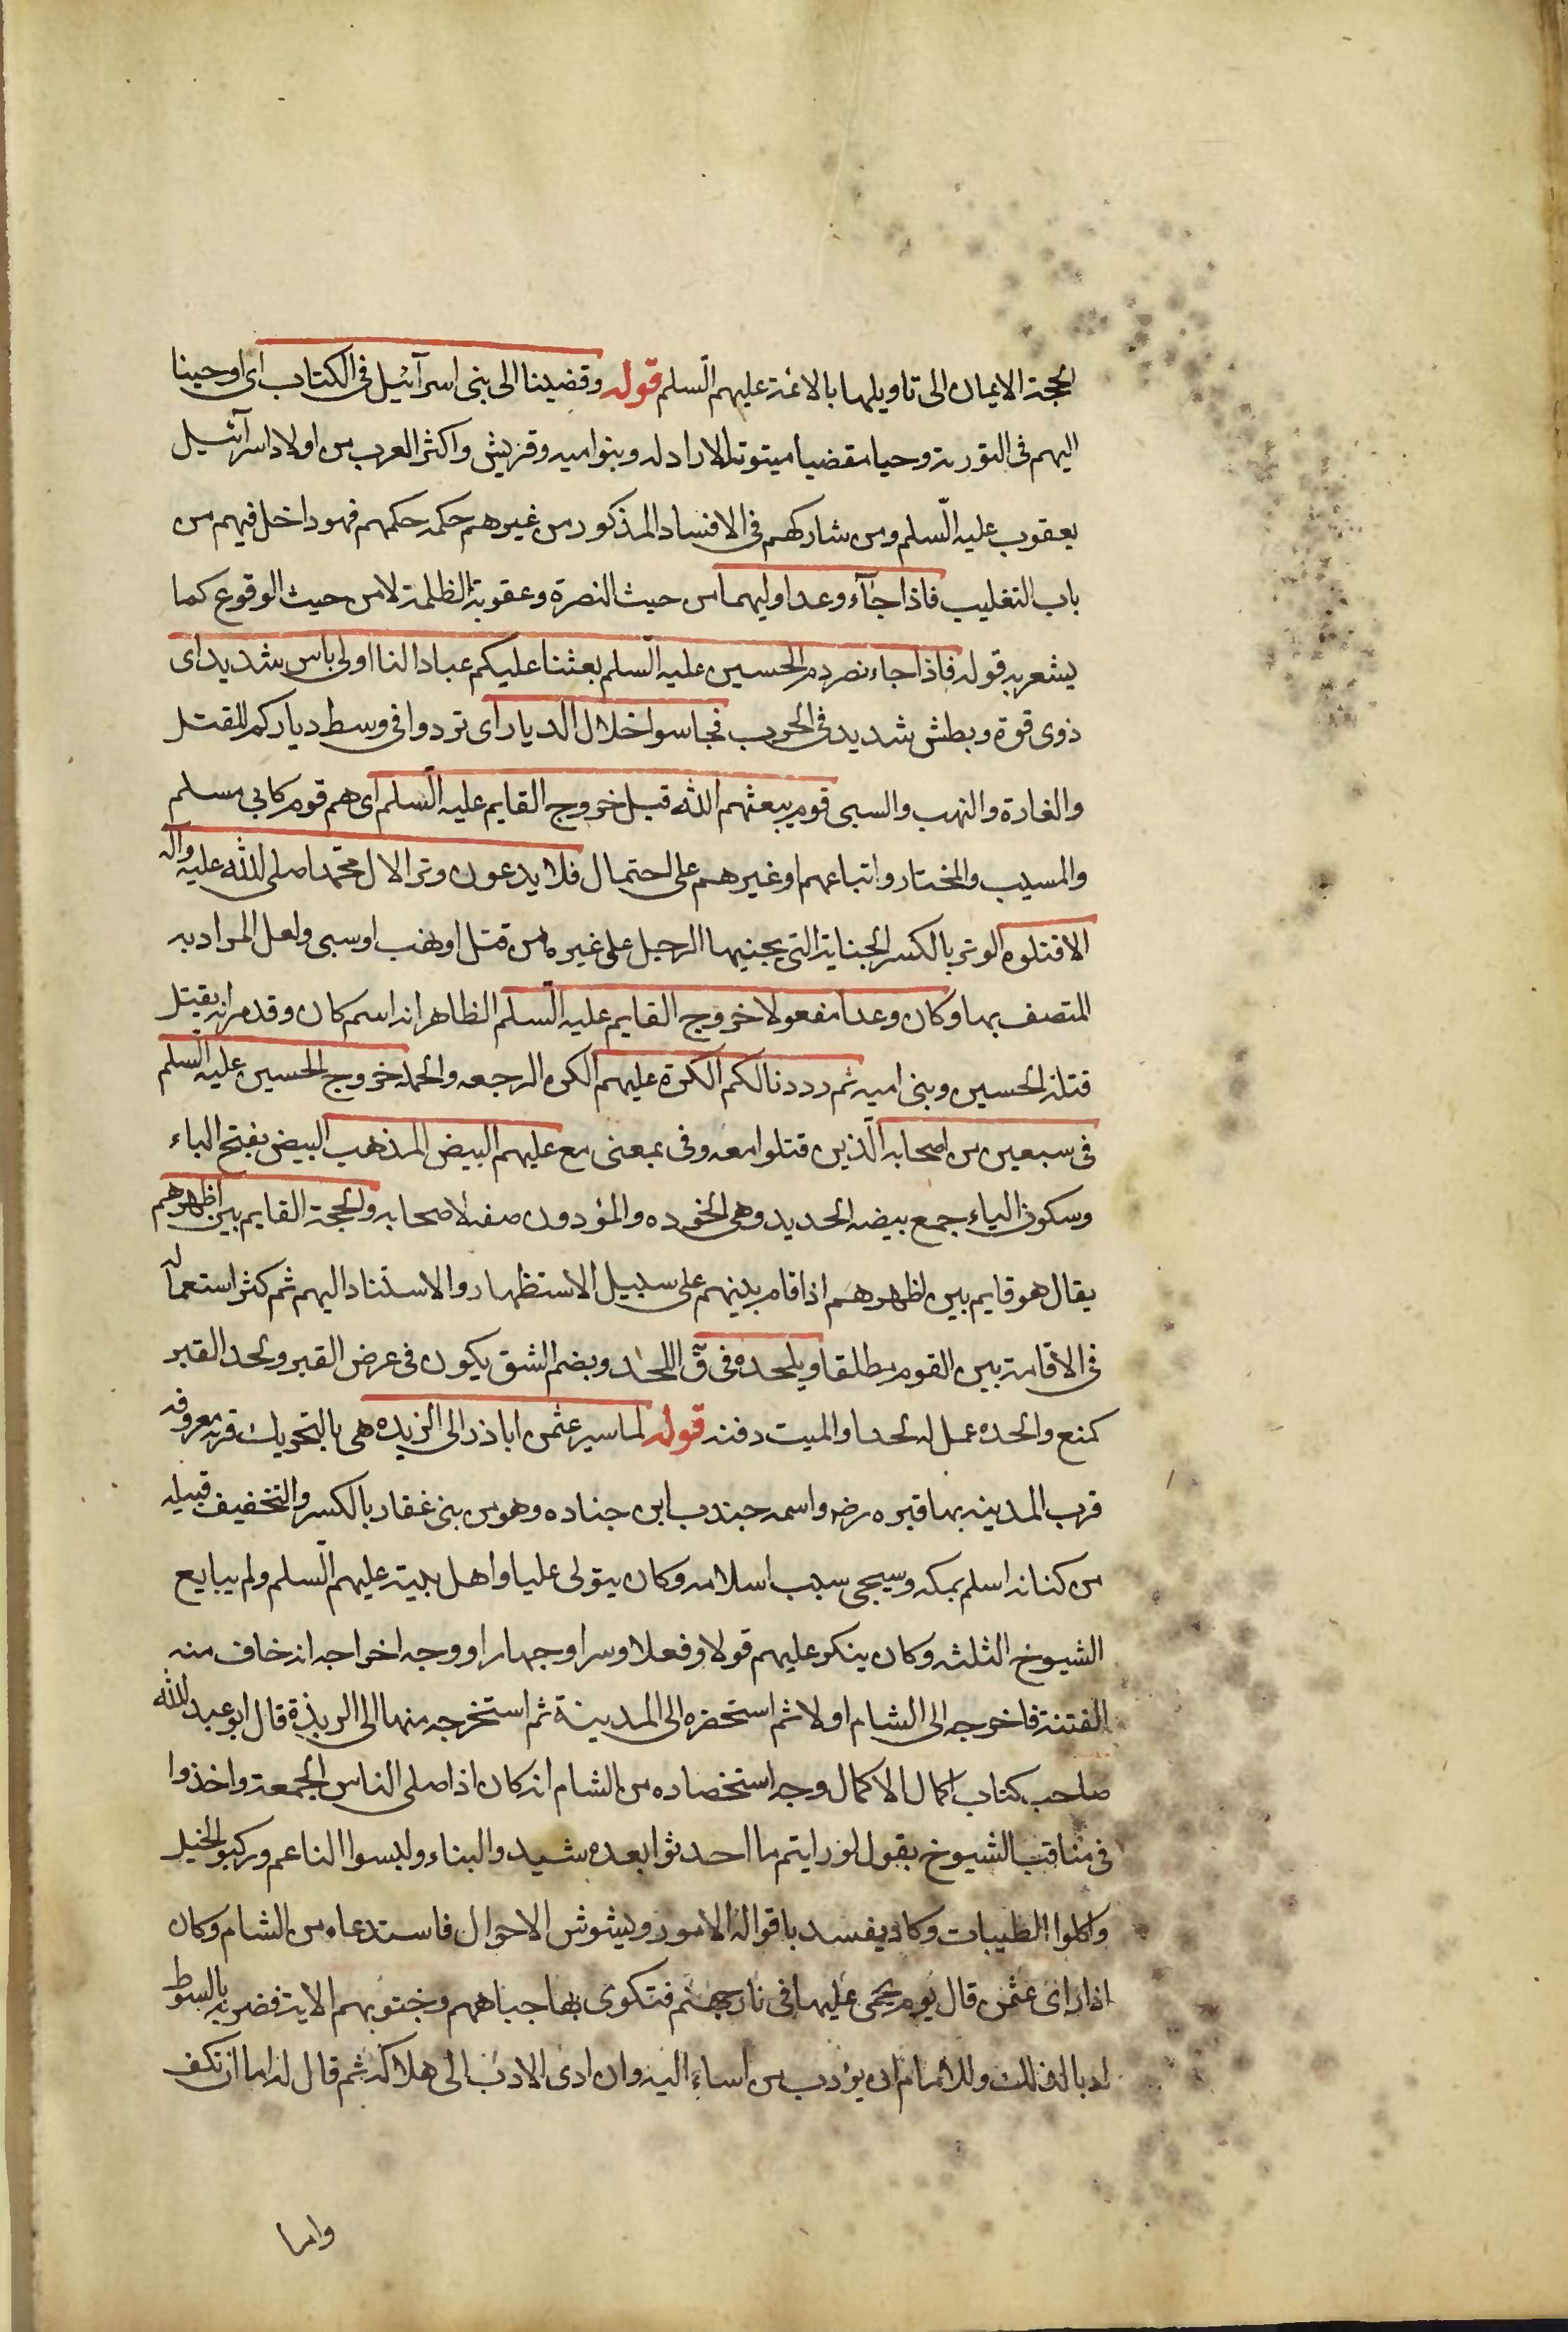 الحجة الايمان الى تاويلها بالائمة عليهم السلم قوله وقضينا الى بنى اسرآئيل فى الكتاب اى اوحينا
اليهم فى التورية وحيا مقضيا مبتوتا لا راد له وبنوا ميه وقريش واكثر العرب من اولاد اسرآئيل
يعقوب عليه السلم ومن شاركهم فى الافساد المذكور من غيرهم حكمه حكمهم فهو داخل فيهم من
باب التغليب فاذا جآء وعد اوليهما من حيث النصرة وعقوبة الظلمة لا من حيث الوقوع كما
يشعر به قوله فاذا جاء نصر دم الحسين عليه السلم بعثنا عليكم عبادا لنا اولى باس شديد اى
ذوى قوة وبطش شديد فى الحرب فجاسوا خلال الديار اى ترددوا فى وسط دياركم للقتل
والغارة والنهب والسبى قوم يبعثهم الله قبل خروج القايم عليه السلم اى هم قوم كابى مسلم
والمسيب والمختار واتباعهم او غيرهم على احتمال فلا يدعون وترا لال محمد صلى الله عليه واله
الا قتلوه الوتر بالكسر الجناية التى يجنيها الرجل على غيره من قتل او نهب او سبى ولعل المراد به
المتصف بها وكان وعدا مفعولا خروج القايم عليه السلم الظاهر انه اسم كان وقد مر انه يقتل
قتلة الحسين وبنى اميه ثم رددنا لكم الكرة عليهم الكره الرجعه والحملة خروج الحسين عليه السلم
فى سبعين من اصحابه الذين قتلوا معه وفى بمعنى مع عليهم البيض المذهب البيض بفتح الباء
وسكون الياء جمع بيضه الحديد وهى الخوده والمؤدون صفة لاصحابه والحجة القايم بين اظهرهم
يقال هو قايم بين اظهرهم اذا قام بينهم على سبيل الاستظهار والاستناد اليهم ثم كثر استعماله
فى الاقامة بين القوم مطلقا ويلحده فى ق اللحد وبضم الشق يكون فى عرض القبر ولحد القبر
كمنع والحده عمل له لحدا والميت دفنه قوله لما سير عثمن اباذر الى الربذه هى بالتحريك قريه معروفه
قرب المدينه بها قبره رضه واسمه جندب ابن جناده وهو من بنى غفار بالكسر والتخفيف قبيله
من كنانه اسلم بمكه وسيجى سبب اسلامه وكان يتولى عليا واهل بيته عليهم السلم ولم يبايع
الشيوخ الثلثه وكان ينكر عليهم قولا وفعلا وسرا وجهارا ووجه اخراجه انه خاف منه
الفتنة فاخرجه الى الشام اولا ثم استحضره الى المدينة ثم استخرجه منها الى الربذة قال ابو عبد الله
صاحب كتاب اكمال الاكمال وجه استخضاره من الشام انه كان اذا صلى الناس الجمعة واخذوا
فى مناقب الشيوخ يقول لو رايتم ما احدثوا بعده شيد والبناء ولبسوا الناعم وركبوا الخيل
واكلوا الطيبات وكاد يفسد باقواله الامور ويشوش الاحوال فاستدعاه من الشام وكان
اذا راى عثمن قال يوم يحمى عليها فى نار جهنم فتكوى بها جباههم وجنوبهم الاية فضربه بالسوط
ادبا لذلك وللامام ان يؤدب من اساء اليه وان ادى الادب الى هلاكه ثم قال له اما ان تكف
واما